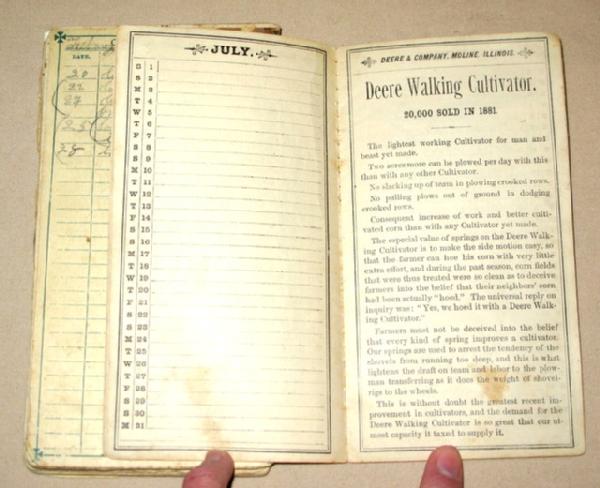 DATE.
20
27
JULY.
S 1
S 2
M 3
T 4
W 5
T 6
F 7
S 8
S 9
M 10
T 11
W 12
T 13
F 14
S 15
S 16
M 17
T 18
W 19
T 20
F 21
S 22
S 23
M 24
T 25
W 26
T 27
F 28
S 29
S 30
M 31
DEERE & COMPANY, MOLINE, ILLINOIS.
Deere Walking Cultivator.
20,000 SOLD IN 1881
The lightest working Cultivator for man and
beast yet made.
Two acres more can be plowed per day with this
than with any other Cultivator.
No slacking up of team in plowing crooked rows.
No pulling plows out of ground in dodging
crooked rows.
Consequent increase of work and better culti-
vated corn than with any Cultivator yet made.
The especial value of springs on the Deere Walk-
ing Cultivator is to make the side motion easy, so
that the farmer can hoe his corn with very little
extra effort, and during the past season, corn fields
that were thus treated were so clean as to deceive
farmers into the belief that their neighbors' corn
had been actually "hoed." The universal reply on
inquiry was: "Yes, we hoed it with a Deere Walk-
ing Cultivator."
Farmers must not be deceived into the belief
that every kind of spring improves a cultivator.
Our springs are used to arrest the tendency of the
shovels from running too deep, and this is what
lightens the draft on team and labor to the plow-
man transferring as it does the weight of shovel-
rigs to the wheels.
This is without doubt the greatest recent im-
provement in cultivators, and the demand for the
Deere Walking Cultivator is so great that our ut-
most capacity is taxed to supply it.